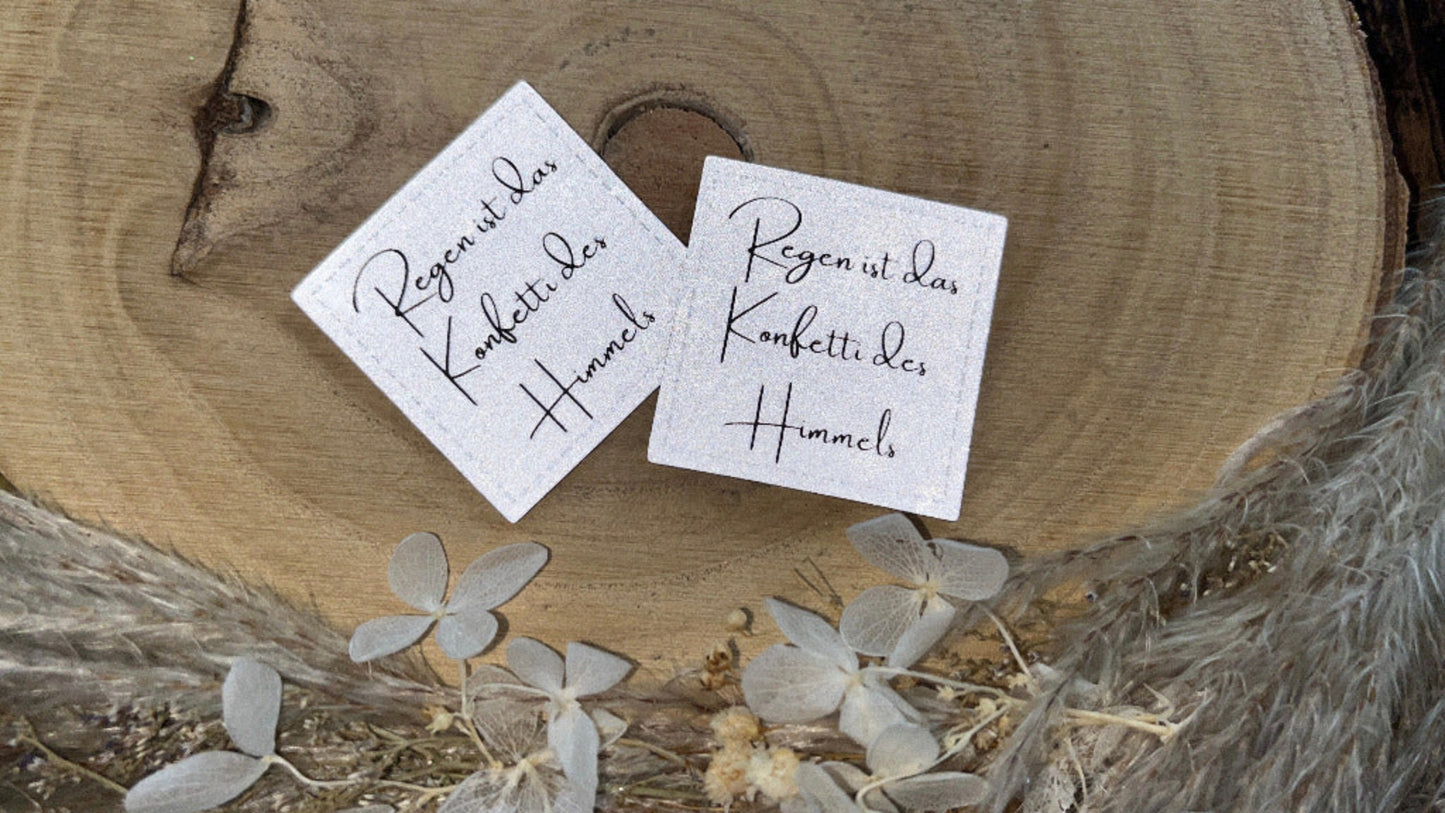 Regen ist das
Konfetti des
Himmels
Regen ist das
Konfetti des
Himmels